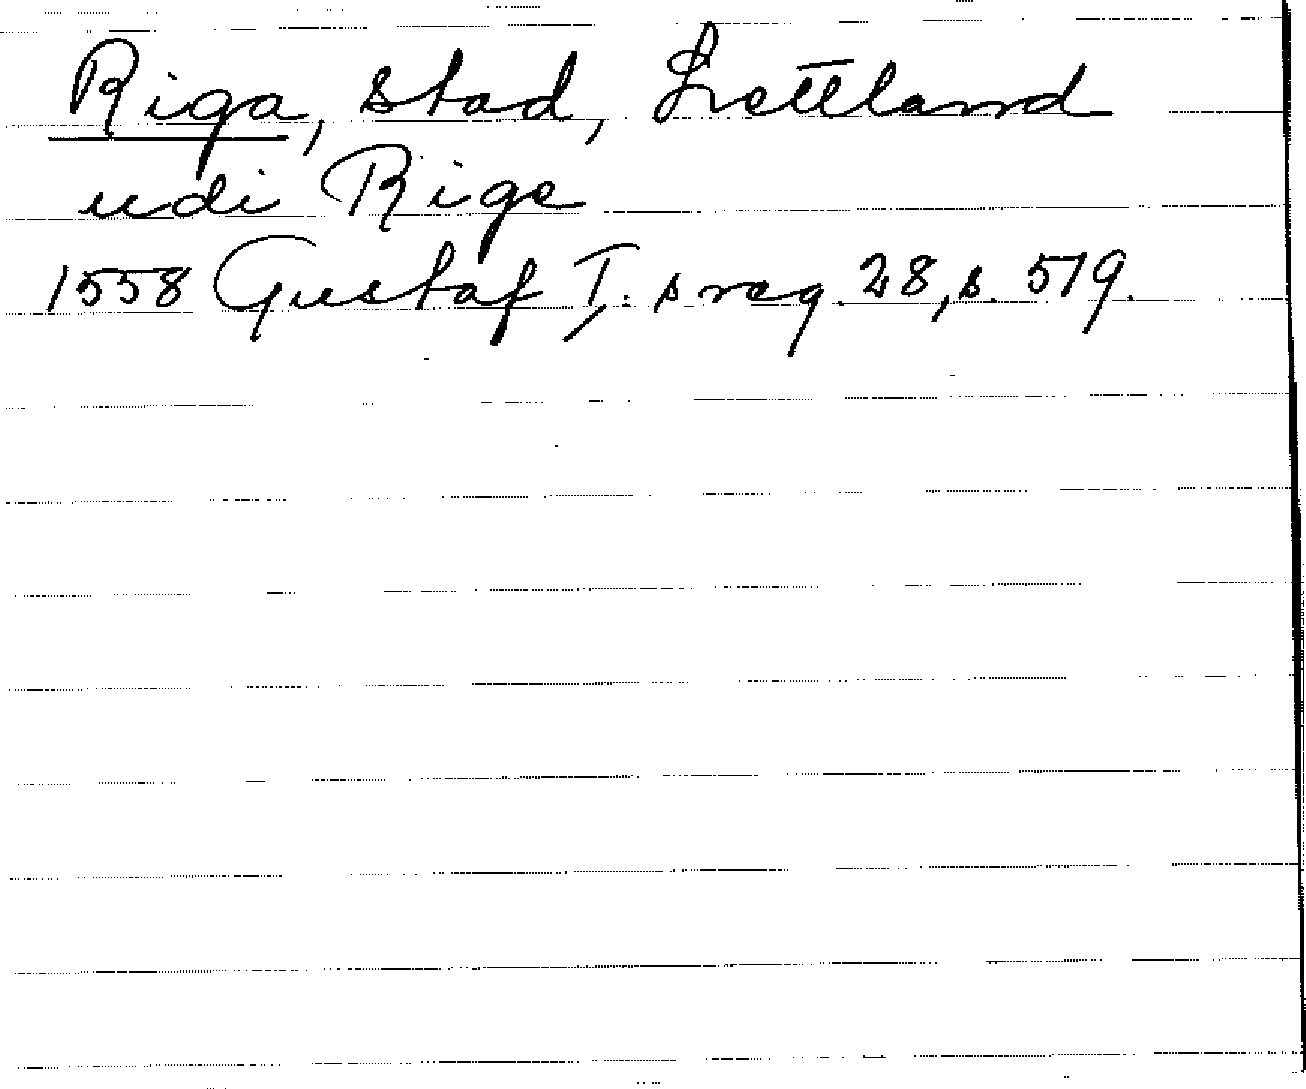 Riga, stad, Lettland
udi Rige
1558 Gustaf I:s reg. 28, s. 519.